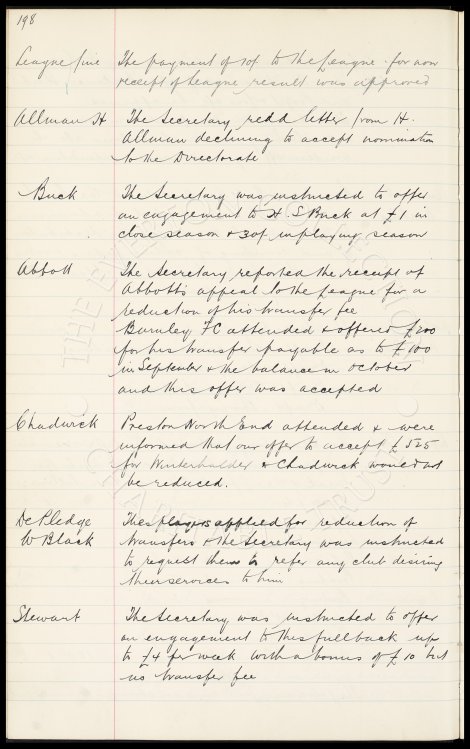 198
League fine The payment of 10/ to the League for non
receipt of League result was approved
Allman H The Secretary read letter from H.
Allman declining to accept nomination
to the Directorate
Buck The Secretary was instructed to offer
an engagement to H. S Buck at £1 in
close season & 30/ in playing season
Abbott The Secretary reported the receipt of
Abbott's appeal to the League for a
reduction of his transfer fee
Burnley FC attended & offered £200
for his transfer payable as to £100
in September & the balance in October
and this offer was accepted
Chadwick Preston North End attended & were
informed that our offer to accept £525
for Winterhalder & Chadwick would not
be reduced.
De Pledge These players applied for reduction of
W Black transfers & the Secretary was instructed
to request them to refer any club desiring
their services to him
Stewart The Secretary was instructed to offer
an engagement to this fullback up
to £4 per week with a bonus of £10 but
no transfer fee